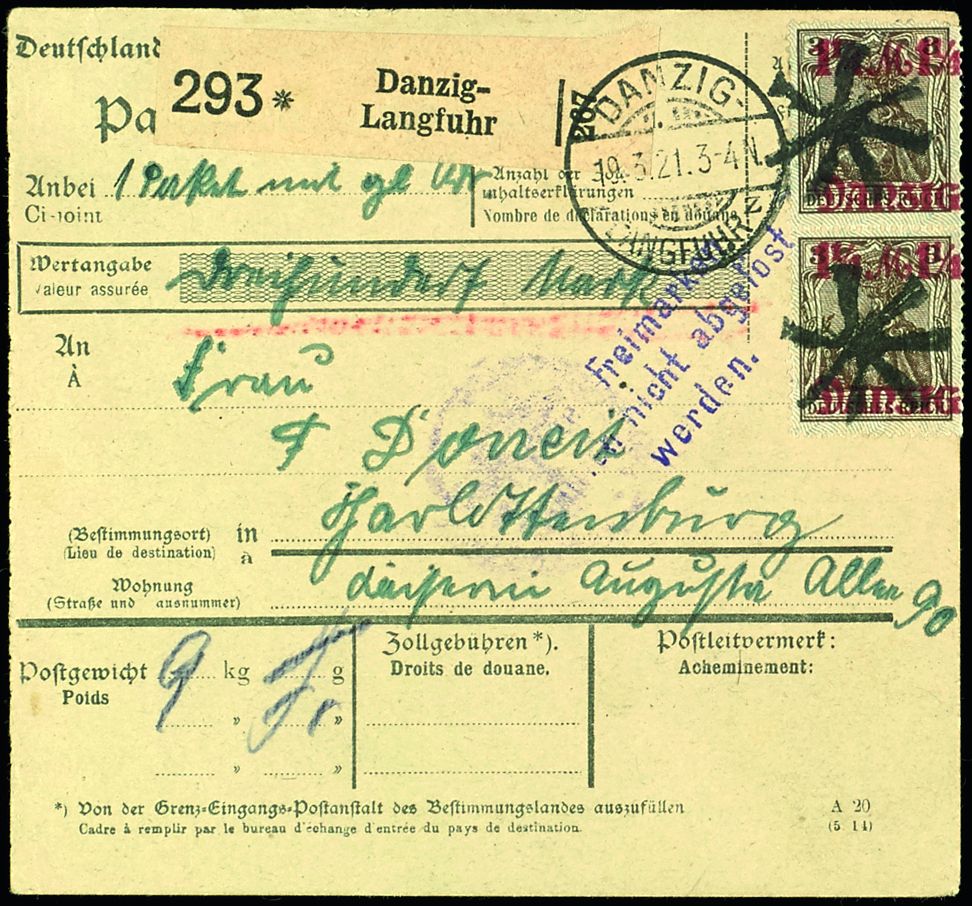 Deutschland
Pa
293 * Danzig-
Langfuhr
267
DANZIG-
19.3.21.3-4N.
LANGFUHR
Anbei 1 Paket mit
Ci-joint
Anzahl der
Inhaltserklärungen
Nombre de déclarations en douane
Wertangabe
Valeur assurée
Dreihundert Mark
Freimarken
nicht abgelöst
werden.
An
À
Frau
Charlottenburg
(Bestimmungsort) in
(Lieu de destination) à
Wohnung
(Straße und ausnummer)
Kaiserin Augusta Allee 90
Postgewicht 9 kg g
Poids
" "
" "
Zollgebühren *).
Droits de douane.
Postleitvermerk:
Acheminement:
*) Von der Grenz-Eingangs-Postanstalt des Bestimmungslandes auszufüllen
Cadre à remplir par le bureau d'échange d'entrée du pays de destination.
A 20
(5 14)
3 3
1¼ M 1¼
DEUTSCHES REICH
Danzig
3 3
1¼ M 1¼
DEUTSCHES REICH
Danzig